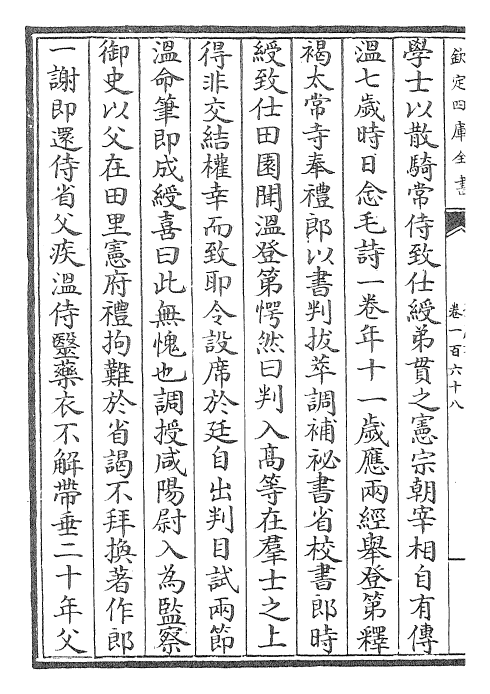 欽定四庫全書
卷一百六十八
學士以散騎常侍致仕綬弟貫之憲宗朝宰相自有傳
溫七歲時日念毛詩一卷年十一歲應兩經舉登第釋
褐太常寺奉禮郎以書判拔萃調補祕書省校書郎時
綬致仕田園聞溫登第愕然曰判入髙等在羣士之上
得非交結權幸而致耶令設席於廷自出判目試兩節
溫命筆即成綬喜曰此無愧也調授咸陽尉入為監察
御史以父在田里憲府禮拘難於省謁不拜換著作郎
一謝即還侍省父疾溫侍毉藥衣不解帶垂二十年父